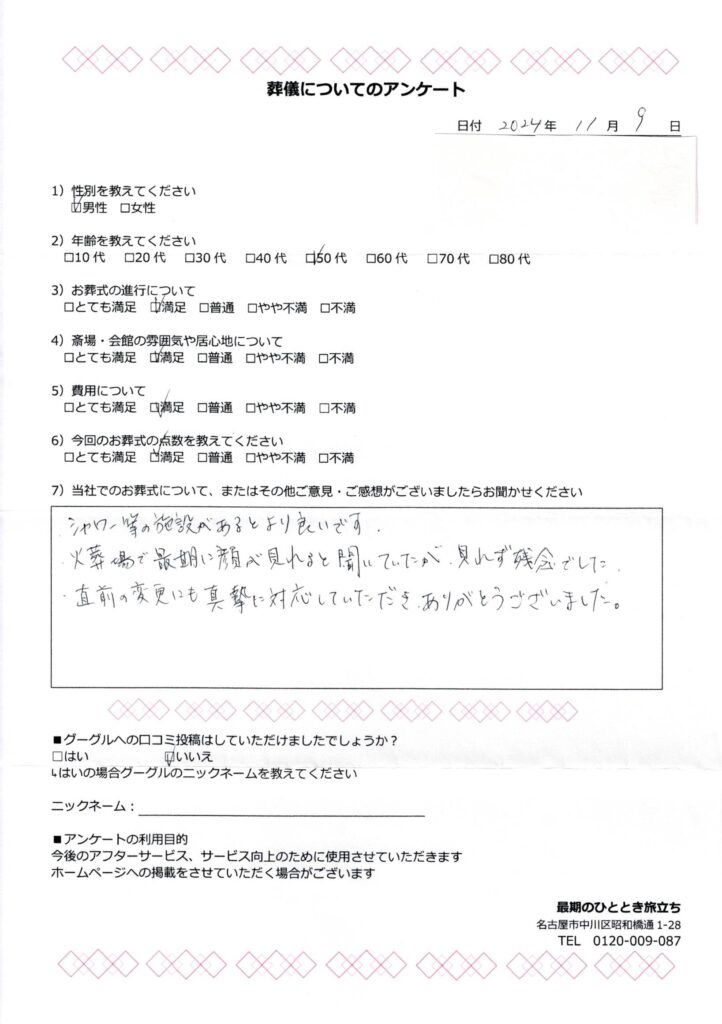 葬儀についてのアンケート
日付 2024年 11月 9日
1）性別を教えてください
☑男性 □女性
2）年齢を教えてください
□10代 □20代 □30代 □40代 ☑50代 □60代 □70代 □80代
3）お葬式の進行について
□とても満足 ☑満足 □普通 □やや不満 □不満
4）斎場・会館の雰囲気や居心地について
□とても満足 ☑満足 □普通 □やや不満 □不満
5）費用について
□とても満足 ☑満足 □普通 □やや不満 □不満
6）今回のお葬式の点数を教えてください
□とても満足 ☑満足 □普通 □やや不満 □不満
7）当社でのお葬式について、またはその他ご意見・ご感想がございましたらお聞かせください
・シャワー等の施設があるとより良いです.
・火葬場で最期に顔が見れると聞いていたが、見れず残念でした.
・直前の変更にも真摯に対応していただき、ありがとうございました。
■グーグルへの口コミ投稿はしていただけましたでしょうか？
□はい ☑いいえ
↳はいの場合グーグルのニックネームを教えてください
ニックネーム：
■アンケートの利用目的
今後のアフターサービス、サービス向上のために使用させていただきます
ホームページへの掲載をさせていただく場合がございます
最期のひととき旅立ち
名古屋市中川区昭和橋通1-28
TEL 0120-009-087